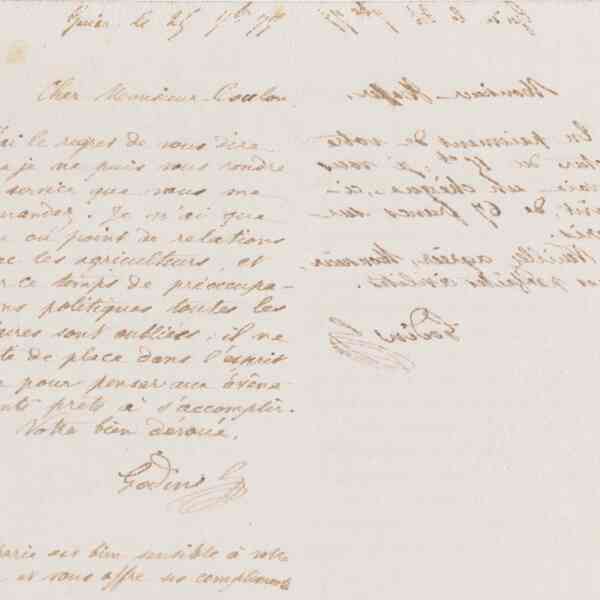 Guise le 25 9bre 77
Cher Monsieur Coulon
ai le regret de vous dire
e je ne puis vous rendre
service que vous me
mandez. Je n'ai que
ou point de relations
c les agriculteurs, et
r ce temps de préoccupa-
ns politiques toutes les
aires sont oubliées; il ne
te de place dans l'esprit
pour penser aux évène
nts prêts à s'accomplir.
Votre bien dévoué.
Godin
Marie est bien sensible à votre
et vous offre ses compliments
Monsieur
En paiement de votre
de ct. je vous
un chèque, ci-
de 67 francs sur
Veuillez agréer, Monsieur,
parfaites civilités.
Godin